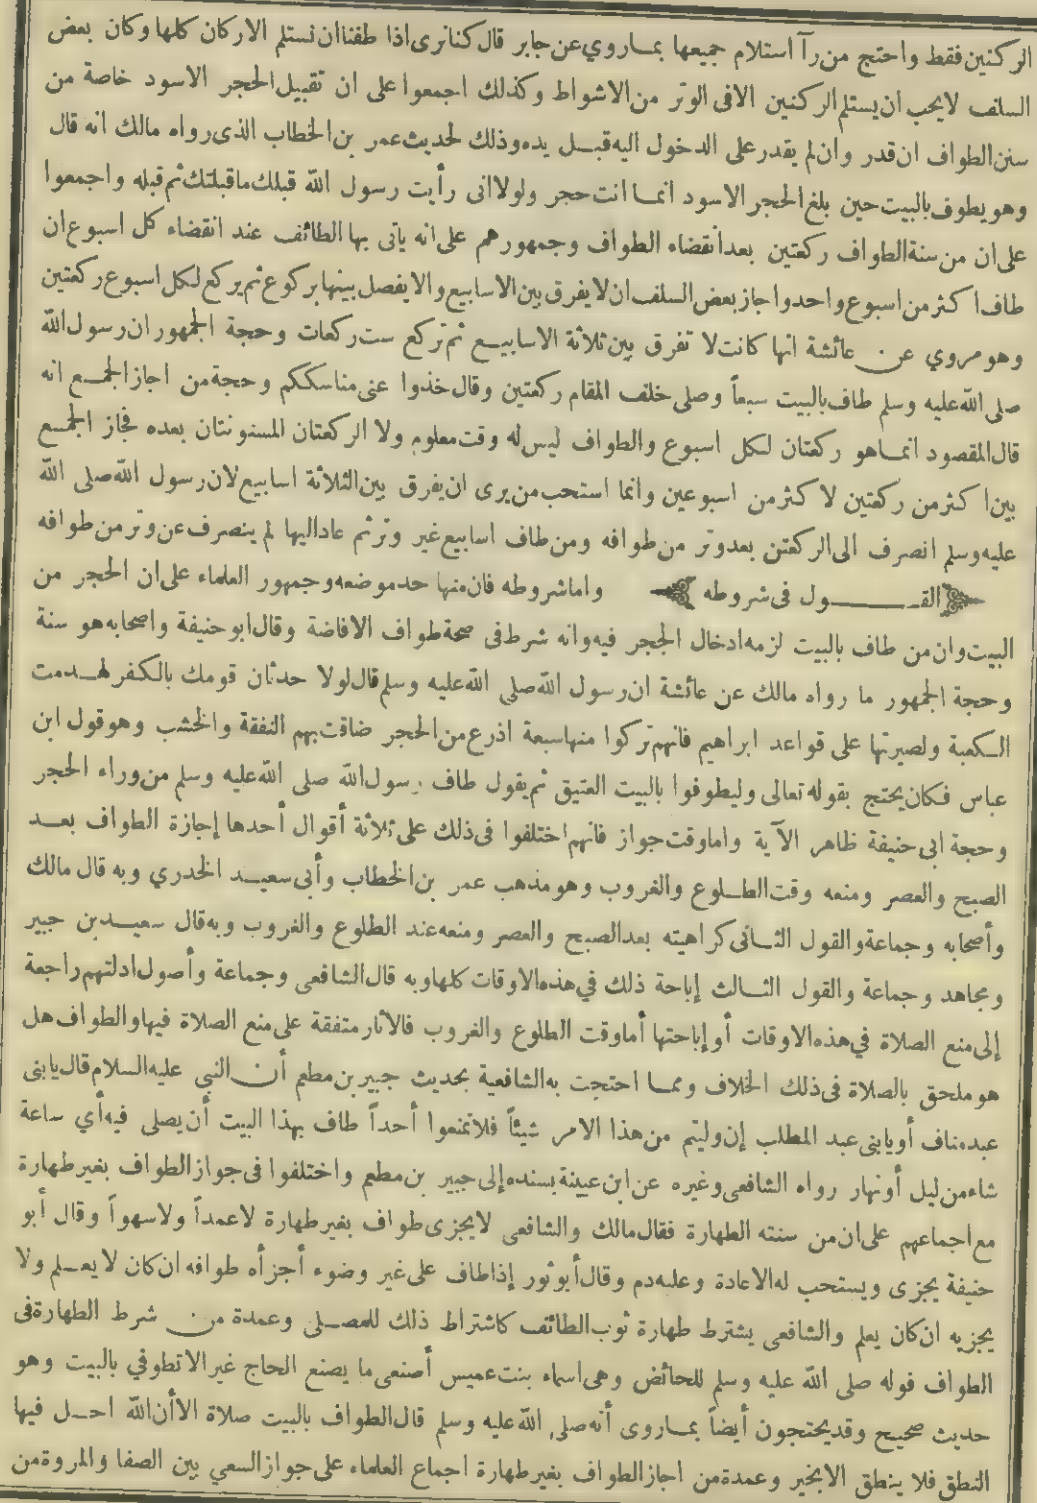 الركنين فقط واحتج من رآ استلام جميعها بما روي عن جابر قال كنا نرى اذا طفنا ان نستلم الاركان كلها وكان بعض
السلف لا يحب ان يستلم الركنين الا فى الوتر من الاشواط وكذلك اجمعوا على ان تقبيل الحجر الاسود خاصة من
سنن الطواف ان قدر وان لم يقدر على الدخول اليه قبل يده وذلك لحديث عمر بن الخطاب الذى رواه مالك انه قال
وهو يطوف بالبيت حين بلغ الحجر الاسود انما انت حجر ولولا انى رأيت رسول الله قبلك ما قبلتك ثم قبله واجمعوا
على ان من سنة الطواف ركعتين بعد انقضاء الطواف وجمهورهم على انه ياتى بها الطائف عند انقضاء كل اسبوع ان
طاف اكثر من اسبوع واحد واجاز بعض السلف ان لا يفرق بين الاسابيع والا يفصل بينها بركوع ثم يركع لكل اسبوع ركعتين
وهو مروي عن عائشة انها كانت لا تفرق بين ثلاثة الاسابيع ثم تركع ست ركعات وحجة الجمهور ان رسول الله
صلى الله عليه وسلم طاف بالبيت سبعاً وصلى خلف المقام ركعتين وقال خذوا عنى مناسككم وحجة من اجاز الجمع انه
قال المقصود انما هو ركعتان لكل اسبوع والطواف ليس له وقت معلوم ولا الركعتان المسنونتان بعده فجاز الجمع
بين اكثر من ركعتين لاكثر من اسبوعين وانما استحب من يرى ان يفرق بين الثلاثة اسابيع لان رسول الله صلى الله
عليه وسلم انصرف الى الركعتن بعد وتر من طوافه ومن طاف اسابيع غير وتر ثم عاد اليها لم ينصرف عن وتر من طوافه
القــول فى شروطه واما شروطه فان منها حد موضعه وجمهور العلماء على ان الحجر من
البيت وان من طاف بالبيت لزمه ادخال الحجر فيه وانه شرط فى صحة طواف الافاضة وقال ابو حنيفة واصحابه هو سنة
وحجة الجمهور ما رواه مالك عن عائشة ان رسول الله صلى الله عليه وسلم قال لولا حدثان قومك بالكفر لهدمت
الكعبة ولصيرتها على قواعد ابراهيم فانهم تركوا منها سبعة اذرع من الحجر ضاقت بهم النفقة والخشب وهو قول ابن
عباس فكان يحتج بقوله تعالى وليطوفوا بالبيت العتيق ثم يقول طاف رسول الله صلى الله عليه وسلم من وراء الحجر
وحجة ابى حنيفة ظاهر الآية واما وقت جواز فانهم اختلفوا فى ذلك على ثلاثة أقوال أحدها إجازة الطواف بعد
الصبح والعصر ومنعه وقت الطلوع والغروب وهو مذهب عمر بن الخطاب وأبى سعيد الخدري وبه قال مالك
وأصحابه وجماعة والقول الثانى كراهيته بعد الصبح والعصر ومنعه عند الطلوع والغروب وبه قال سعيد بن جبير
ومجاهد وجماعة والقول الثالث إباحة ذلك في هذه الاوقات كلها وبه قال الشافعى وجماعة وأصول ادلتهم راجعة
إلى منع الصلاة في هذه الاوقات أو إباحتها أما وقت الطلوع والغروب فالآثار متفقة على منع الصلاة فيها والطواف هل
هو ملحق بالصلاة فى ذلك الخلاف ومما احتجت به الشافعية بحديث جبير بن مطعم أن النبي عليه السلام قال يا بنى
عبد مناف أو يا بنى عبد المطلب إن وليتم من هذا الامر شيئاً فلا تمنعوا أحداً طاف بهذا البيت أن يصلى فيه أي ساعة
شاء من ليل أو نهار رواه الشافعى وغيره عن ابن عيينة بسنده إلى جبير بن مطعم واختلفوا فى جواز الطواف بغير طهارة
مع اجماعهم على ان من سنته الطهارة فقال مالك والشافعى لا يجزى طواف بغير طهارة لا عمداً ولا سهواً وقال أبو
حنيفة يجزى ويستحب له الاعادة وعليه دم وقال أبو ثور إذا طاف على غير وضوء أجزأه طوافه ان كان لا يعلم ولا
يجزيه ان كان يعلم والشافعى يشترط طهارة ثوب الطائف كاشتراط ذلك للمصلى وعمدة من شرط الطهارة فى
الطواف قوله صلى الله عليه وسلم للحائض وهى اسماء بنت عميس أصنعى ما يصنع الحاج غير الا تطوفي بالبيت وهو
حديث صحيح وقد يحتجون أيضاً بما روى أنه صلى الله عليه وسلم قال الطواف بالبيت صلاة الا أن الله احل فيها
النطق فلا ينطق الا بخير وعمدة من اجاز الطواف بغير طهارة اجماع العلماء على جواز السعي بين الصفا والمروة من